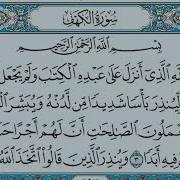 سُورَةُ الكَهْفِ
بِسْمِ اللَّهِ الرَّحْمَٰنِ الرَّحِيمِ
لَّهِ الَّذِىٓ أَنزَلَ عَلَىٰ عَبْدِهِ الْكِتَٰبَ وَلَمْ يَجْعَل
لِّيُنذِرَ بَأْسًا شَدِيدًا مِّن لَّدُنْهُ وَيُبَشِّرَ الْ
يَعْمَلُونَ الصَّٰلِحَٰتِ أَنَّ لَهُمْ أَجْرًا حَ
فِيهِ أَبَدًا ٣ وَيُنذِرَ الَّذِينَ قَالُوا اتَّخَذَ اللَّهُ